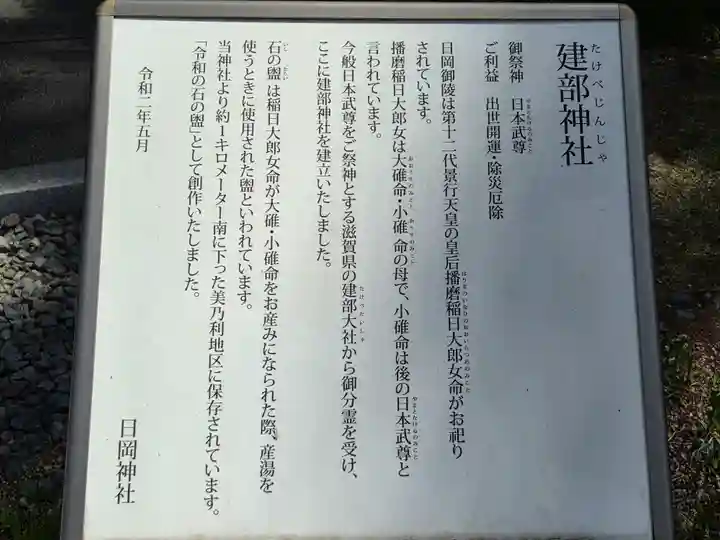 建部神社
たけべじんじゃ
御祭神 日本武尊
ご利益 出世開運・除災厄除
日岡御陵は第十二代景行天皇の皇后播磨稲日大郎女命がお祀り
されています。
播磨稲日大郎女は大碓命・小碓命の母で、小碓命は後の日本武尊と
言われています。
今般日本武尊をご祭神とする滋賀県の建部大社から御分霊を受け、
ここに建部神社を建立いたしました。
石の盥は稲日大郎女命が大碓・小碓命をお産みになられた際、産湯を
使うときに使用された盥といわれています。
当神社より約1キロメーター南に下った美乃利地区に保存されています。
「令和の石の盥」として創作いたしました。
令和二年五月
日岡神社